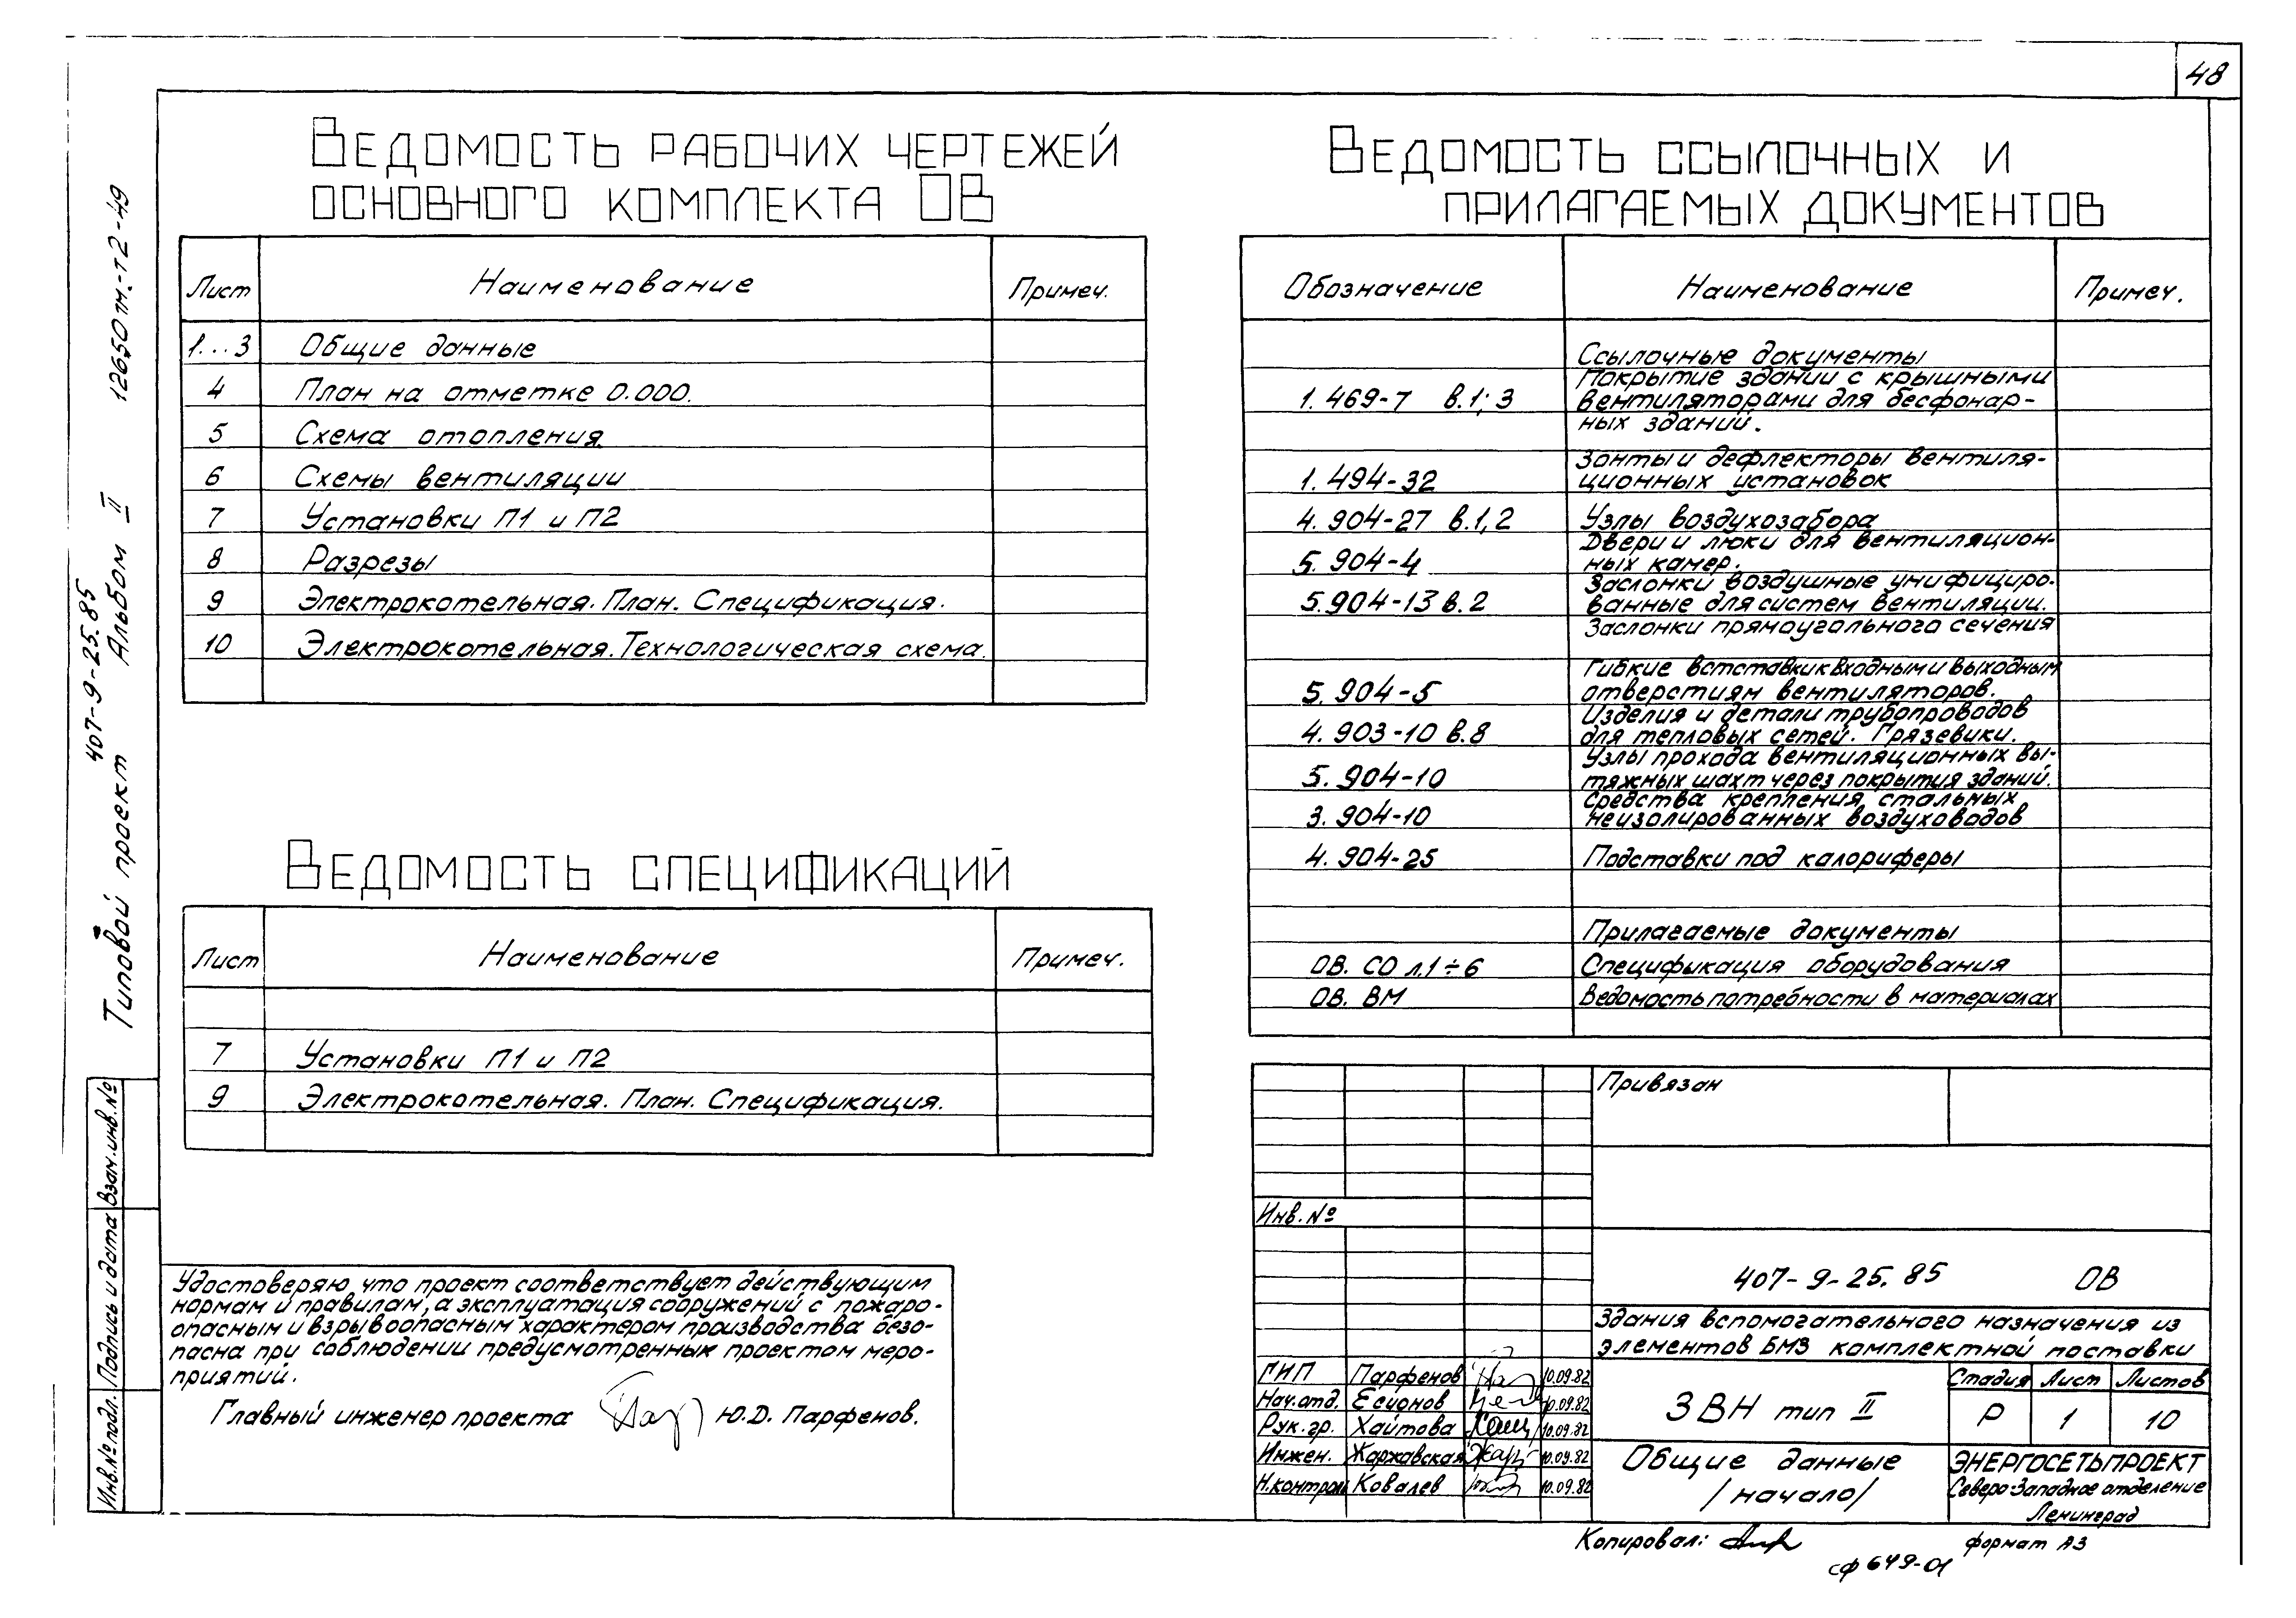 48
Ведомость рабочих чертежей
основного комплекта ОВ
Лист Наименование Примеч.
1...3 Общие данные
4 План на отметке 0.000.
5 Схема отопления.
6 Схемы вентиляции
7 Установки П1 и П2
8 Разрезы
9 Электрокотельная. План. Спецификация.
10 Электрокотельная. Технологическая схема.
Ведомость спецификаций
Лист Наименование Примеч.
7 Установки П1 и П2
9 Электрокотельная. План. Спецификация.
Удостоверяю, что проект соответствует действующим
нормам и правилам, а эксплуатация сооружений с пожаро-
опасным и взрывоопасным характером производства безо-
пасна при соблюдении предусмотренных проектом меро-
приятий.
Главный инженер проекта Ю.Д. Парфенов.
Ведомость ссылочных и
прилагаемых документов
Обозначение Наименование Примеч.
Ссылочные документы
Покрытие зданий с крышными
1.469-7 в.1; 3 вентиляторами для бесфонар-
ных зданий.
Зонты и дефлекторы вентиля-
1.494-32 ционных установок
4.904-27 в.1,2 Узлы воздухозабора
Двери и люки для вентиляцион-
5.904-4 ных камер.
Заслонки воздушные унифициро-
5.904-13 в.2 ванные для систем вентиляции.
Заслонки прямоугольного сечения
Гибкие вставки к входным и выходным
5.904-5 отверстиям вентиляторов.
Изделия и детали трубопроводов
4.903-10 в.8 для тепловых сетей. Грязевики.
Узлы прохода вентиляционных вы-
5.904-10 тяжных шахт через покрытия зданий.
Средства крепления стальных
3.904-10 неизолированных воздуховодов
4.904-25 Подставки под калориферы
Прилагаемые документы
ОВ. СО л.1÷6 Спецификация оборудования
ОВ. ВМ Ведомость потребности в материалах
Привязан
Инв. №
407-9-25.85 ОВ
Здания вспомогательного назначения из
элементов БМЗ комплектной поставки
ГИП Парфенов 10.09.82
Нач.отд. Есионов 10.09.82
Рук. гр. Хаитова 10.09.82
Инжен. Жаржавская 10.09.82
Н.контрол Ковалев 10.09.82
ЗВН тип II
Стадия Лист Листов
Р 1 10
Общие данные
/начало/
ЭНЕРГОСЕТЬПРОЕКТ
Северо-Западное отделение
Ленинград
Копировал:
формат А3
сф 649-01
Типовой проект 407-9-25.85 Альбом II 12650тм-т2-49
Инв.№ подл. Подпись и дата Взам.инв.№